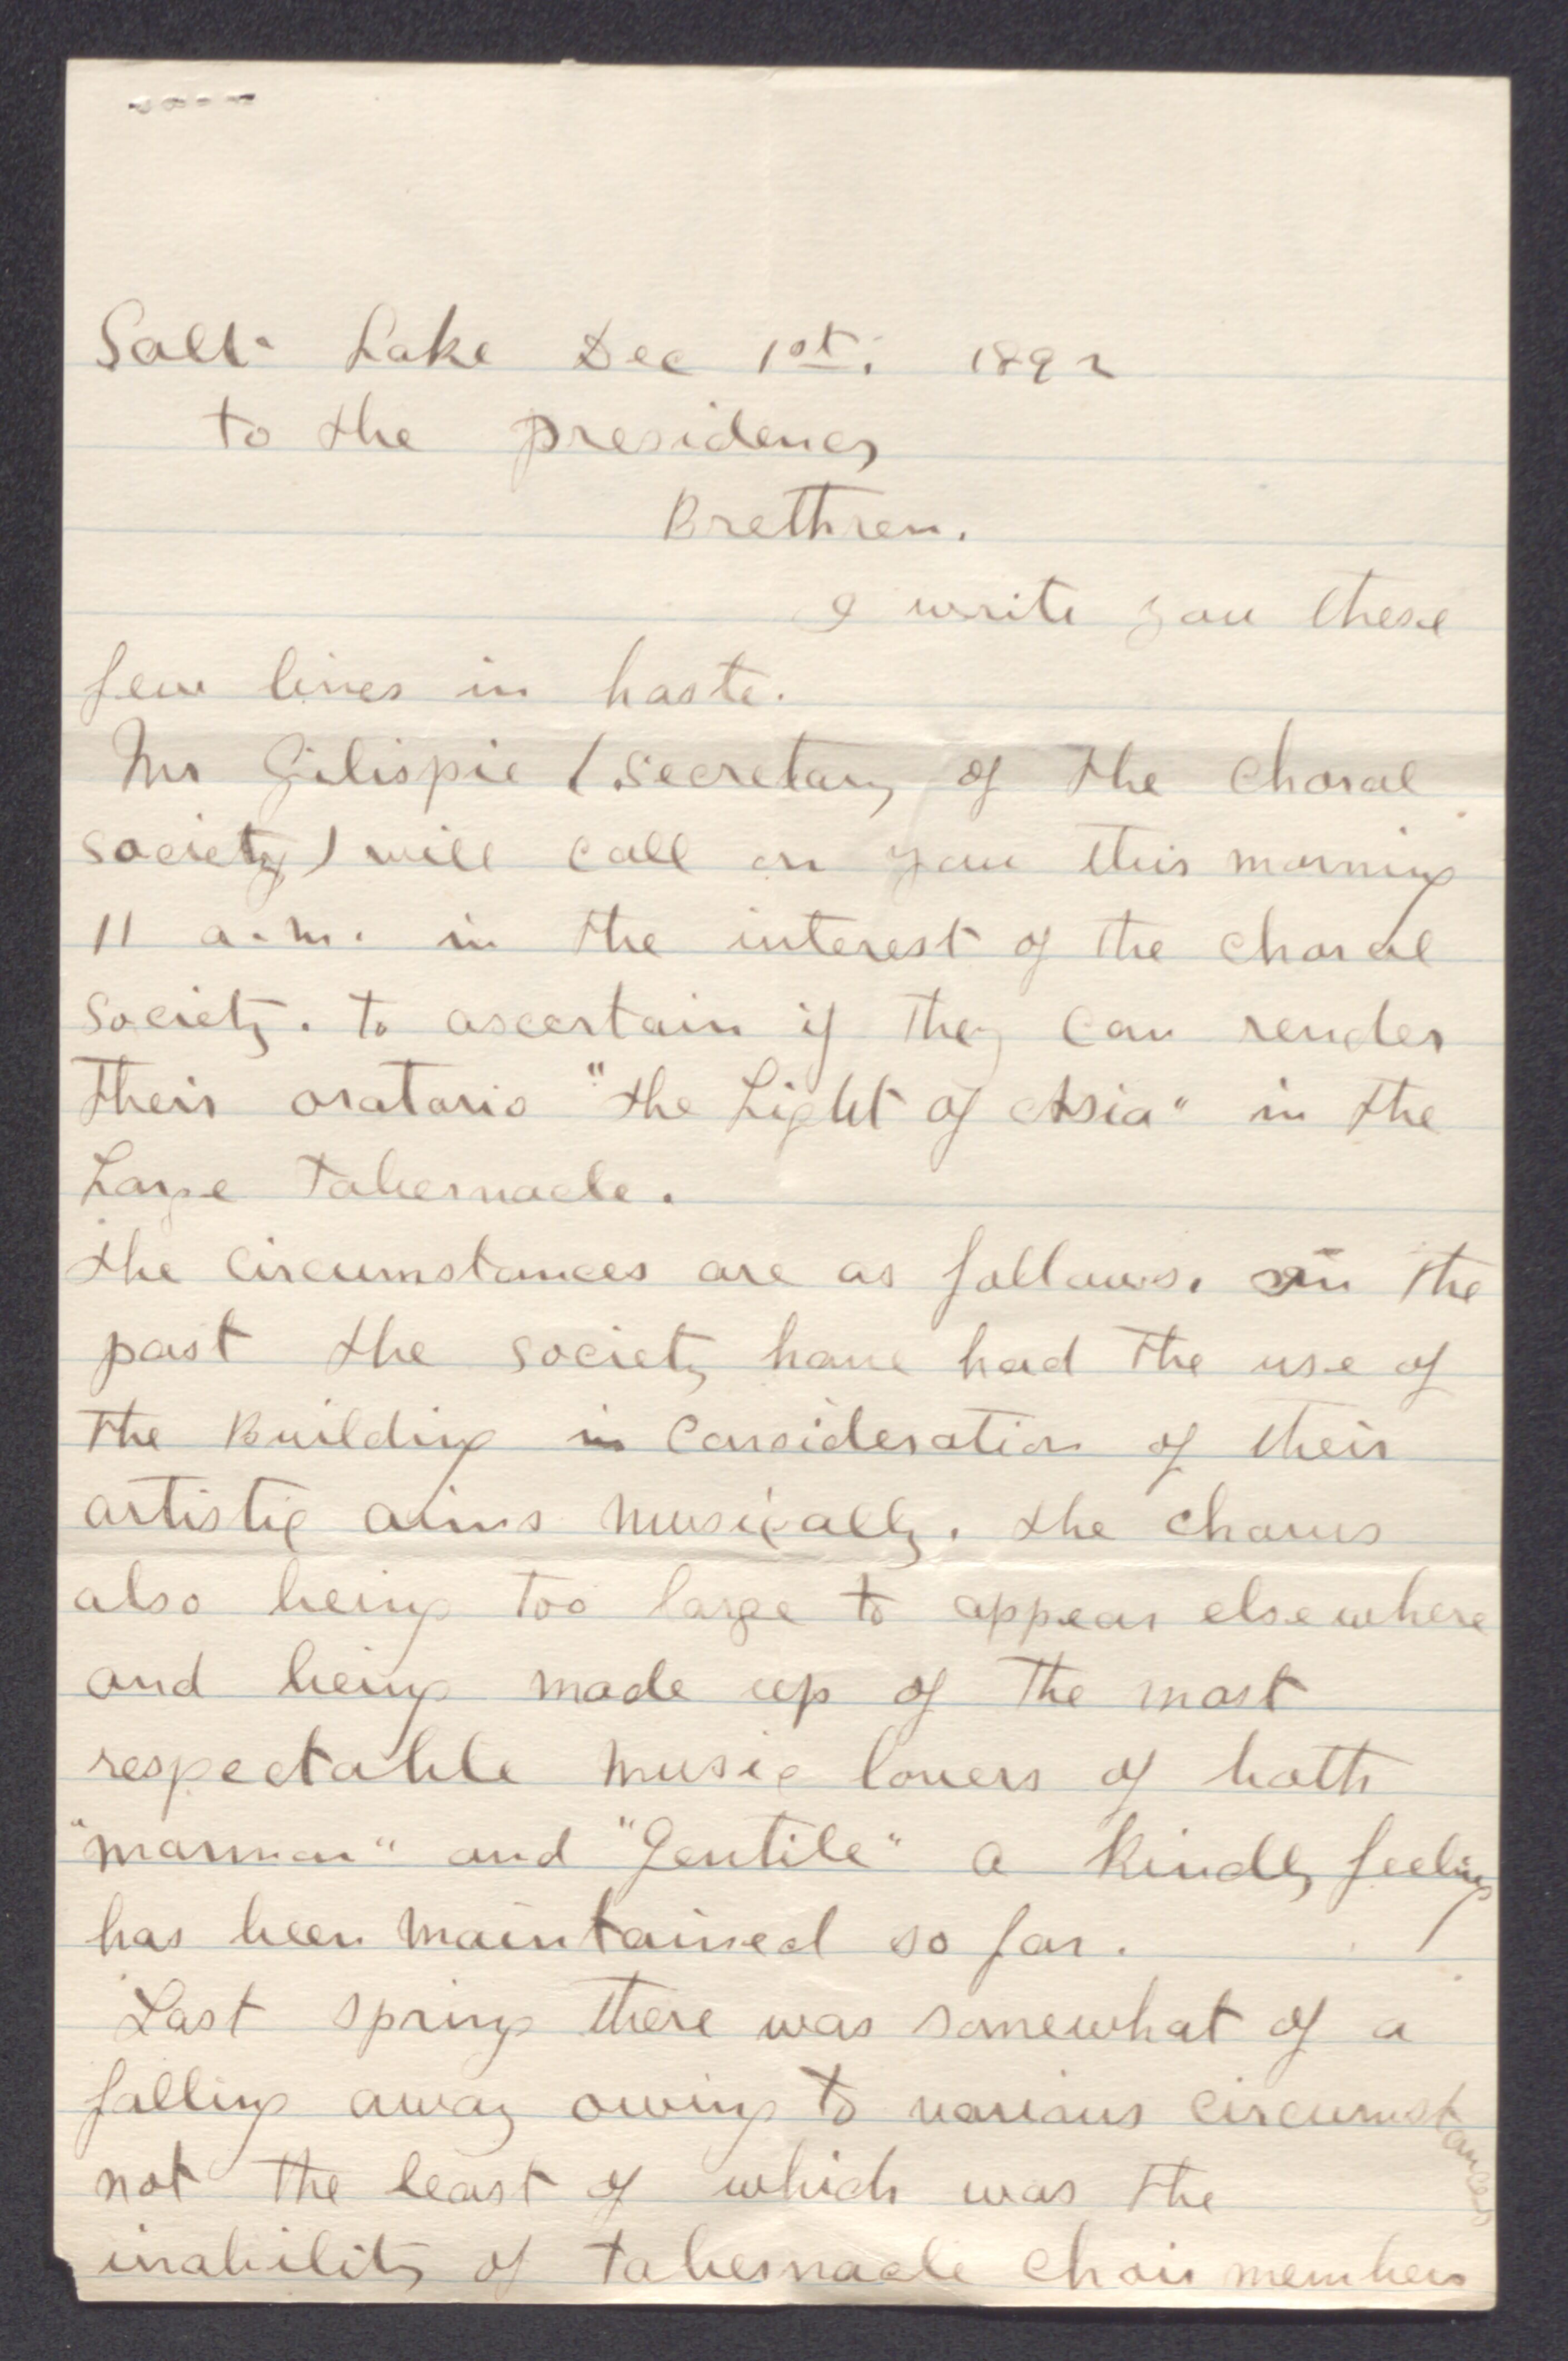 Salt Lake Dec 1st. 1892
to the presidency
Brethren.
I write you these
few lines in haste.
Mr Gilispie (secretary of the choral
society) will call on you this morning
11 a.m. in the interest of the choral
society. to ascertain if they can render
their oratorio "the Light of Asia" in the
Large tabernacle.
the circumstances are as follows. in the
past the society have had the use of
the Building in consideration of their
artistic aims musically. the chorus
also being too large to appear elsewhere
and being made up of the most
respectable music lovers of both
"mormon" and "Gentile" a kindly feeling
has been maintained so far.
Last spring there was somewhat of a
falling away owing to various circumstances
not the least of which was the
inability of tabernacle choir members